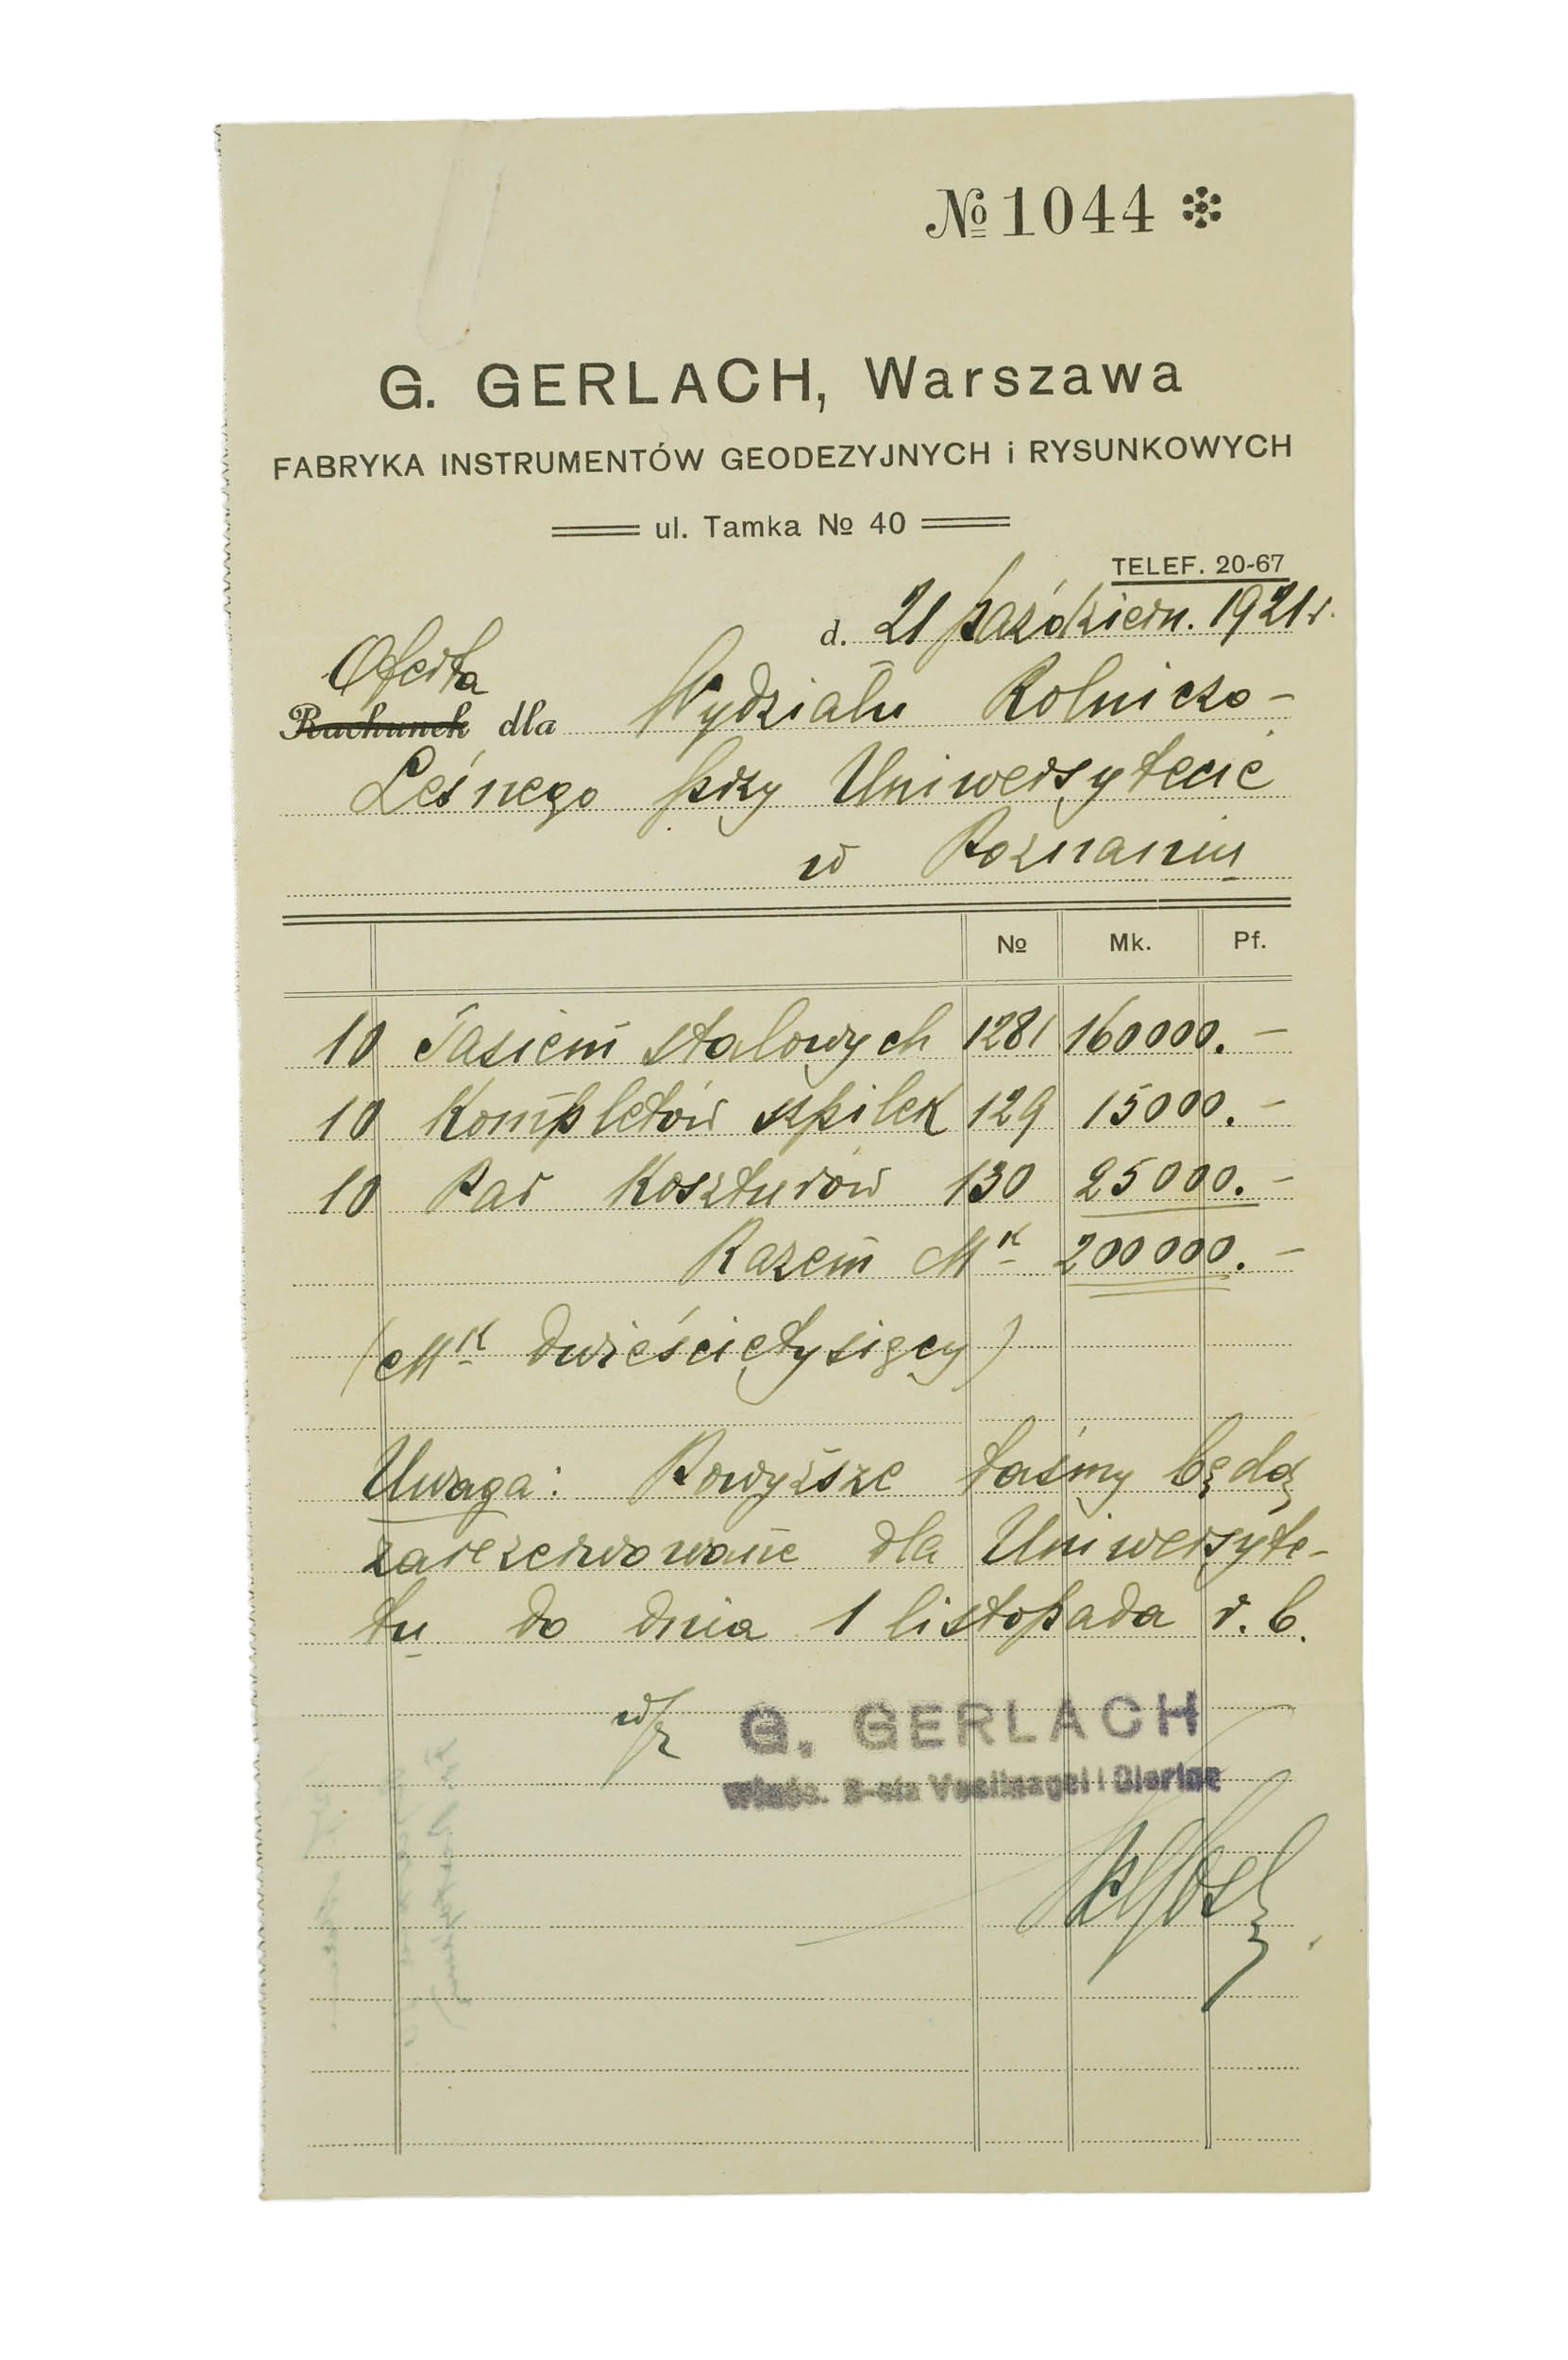 № 1044
G. GERLACH, Warszawa
FABRYKA INSTRUMENTÓW GEODEZYJNYCH i RYSUNKOWYCH
ul. Tamka № 40
TELEF. 20-67
d. 21 październ. 1921 r.
Oferta
Rachunek dla Wydziału Rolniczo-
Leśnego przy Uniwersytecie
w Poznaniu
№ Mk. Pf.
10 Tasiem stalowych 1281 160000.-
10 Kompletów szpilek 129 15000.-
10 Par Koszturów 130 25000.-
Razem Mk 200000.-
(Mk dwieścietysięcy)
Uwaga: Powyższe taśmy będą
zarezerwowane dla Uniwersyte-
tu do dnia 1 listopada r. b.
w/z G. GERLACH